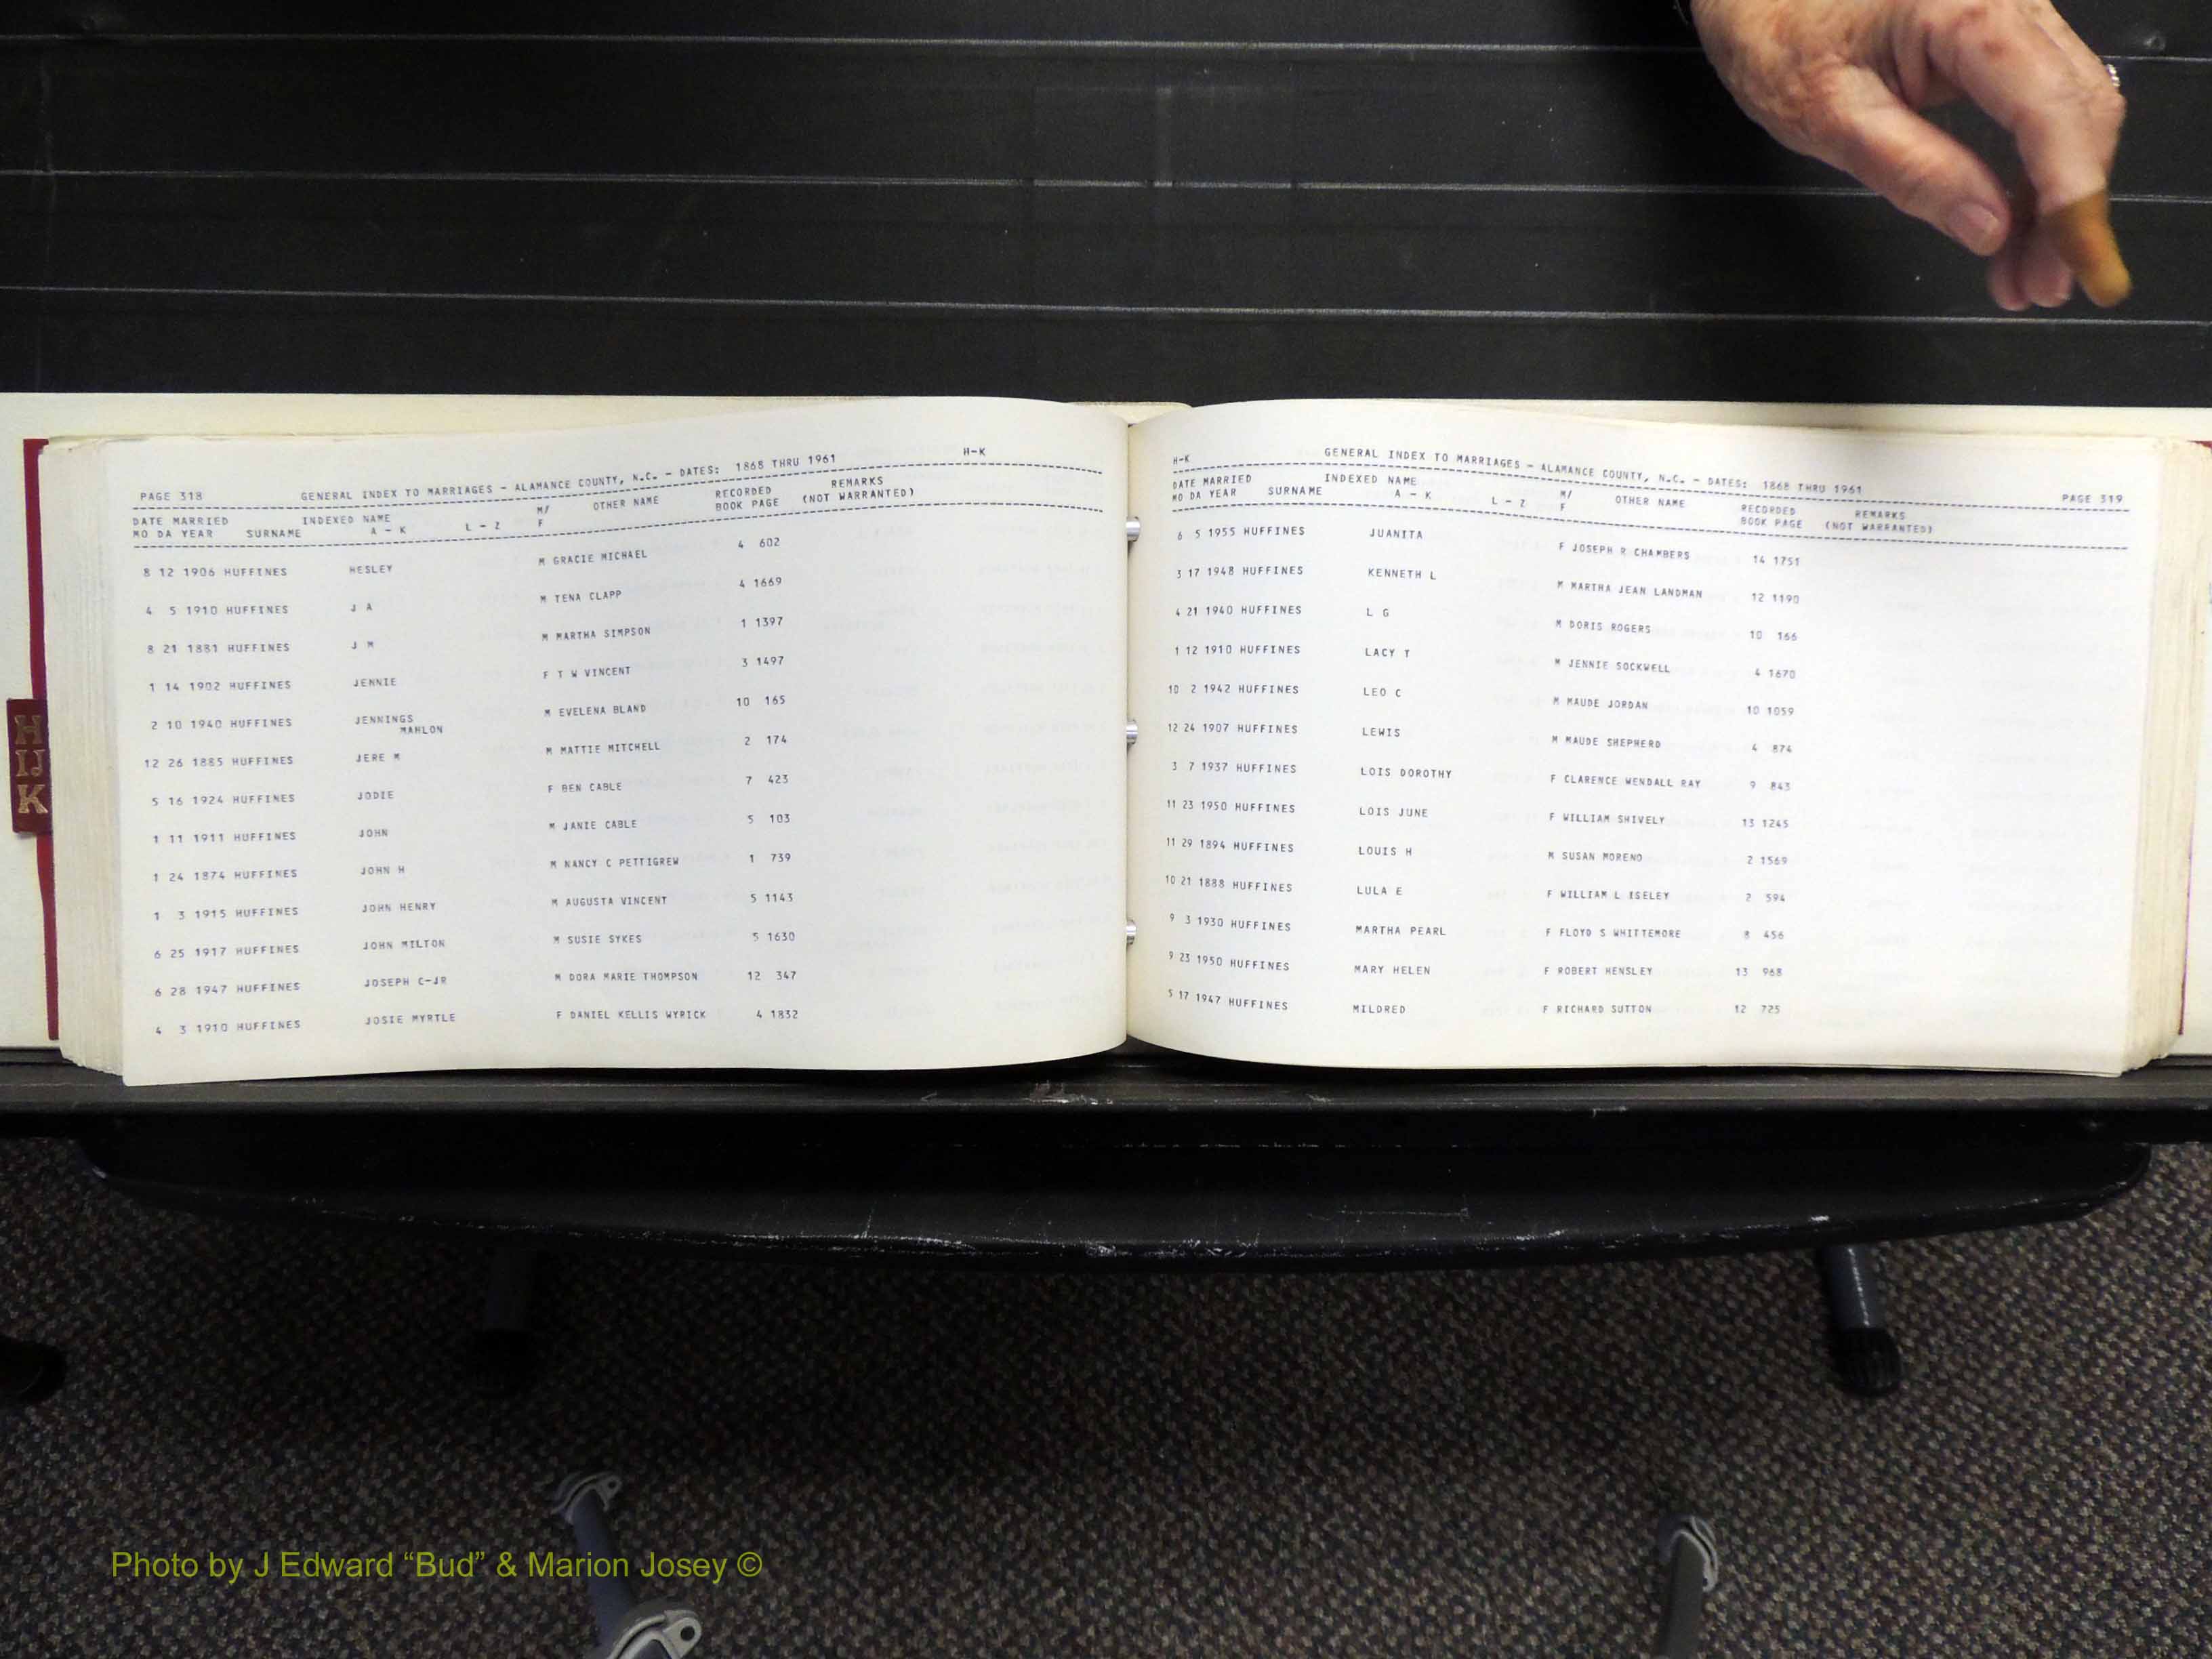 PAGE 318 GENERAL INDEX TO MARRIAGES - ALAMANCE COUNTY, N.C. - DATES: 1868 THRU 1961 H-K
DATE MARRIED INDEXED NAME M/ OTHER NAME RECORDED REMARKS
MO DA YEAR SURNAME A - K L - Z F BOOK PAGE (NOT WARRANTED)
8 12 1906 HUFFINES HESLEY M GRACIE MICHAEL 4 602
4 5 1910 HUFFINES J A M TENA CLAPP 4 1669
8 21 1881 HUFFINES J M M MARTHA SIMPSON 1 1397
1 14 1902 HUFFINES JENNIE F T W VINCENT 3 1497
2 10 1940 HUFFINES JENNINGS M EVELENA BLAND 10 165
MAHLON
12 26 1885 HUFFINES JERE M M MATTIE MITCHELL 2 174
5 16 1924 HUFFINES JODIE F BEN CABLE 7 423
1 11 1911 HUFFINES JOHN M JANIE CABLE 5 103
1 24 1874 HUFFINES JOHN H M NANCY C PETTIGREW 1 739
1 3 1915 HUFFINES JOHN HENRY M AUGUSTA VINCENT 5 1143
6 25 1917 HUFFINES JOHN MILTON M SUSIE SYKES 5 1630
6 28 1947 HUFFINES JOSEPH C-JR M DORA MARIE THOMPSON 12 347
4 3 1910 HUFFINES JOSIE MYRTLE F DANIEL KELLIS WYRICK 4 1832
H-K GENERAL INDEX TO MARRIAGES - ALAMANCE COUNTY, N.C. - DATES: 1868 THRU 1961 PAGE 319
DATE MARRIED INDEXED NAME M/ OTHER NAME RECORDED REMARKS
MO DA YEAR SURNAME A - K L - Z F BOOK PAGE (NOT WARRANTED)
6 5 1955 HUFFINES JUANITA F JOSEPH R CHAMBERS 14 1751
3 17 1948 HUFFINES KENNETH L M MARTHA JEAN LANDMAN 12 1190
4 21 1940 HUFFINES L G M DORIS ROGERS 10 166
1 12 1910 HUFFINES LACY T M JENNIE SOCKWELL 4 1670
10 2 1942 HUFFINES LEO C M MAUDE JORDAN 10 1059
12 24 1907 HUFFINES LEWIS M MAUDE SHEPHERD 4 874
3 7 1937 HUFFINES LOIS DOROTHY F CLARENCE WENDALL RAY 9 843
11 23 1950 HUFFINES LOIS JUNE F WILLIAM SHIVELY 13 1245
11 29 1894 HUFFINES LOUIS H M SUSAN MORENO 2 1569
10 21 1888 HUFFINES LULA E F WILLIAM L ISELEY 2 594
9 3 1930 HUFFINES MARTHA PEARL F FLOYD S WHITTEMORE 8 456
9 23 1950 HUFFINES MARY HELEN F ROBERT HENSLEY 13 968
5 17 1947 HUFFINES MILDRED F RICHARD SUTTON 12 725
H
IJ
K
Photo by J Edward “Bud” & Marion Josey ©